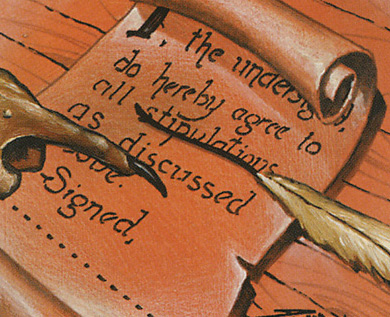 I, the undersigned,
do hereby agree to
all stipulations
as discussed
Signed,